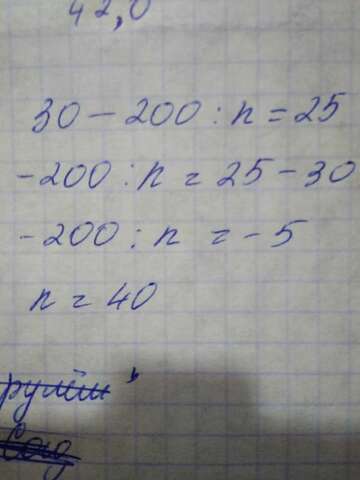 42,0
30 - 200 : n = 25
-200 : n = 25 - 30
-200 : n = -5
n = 40